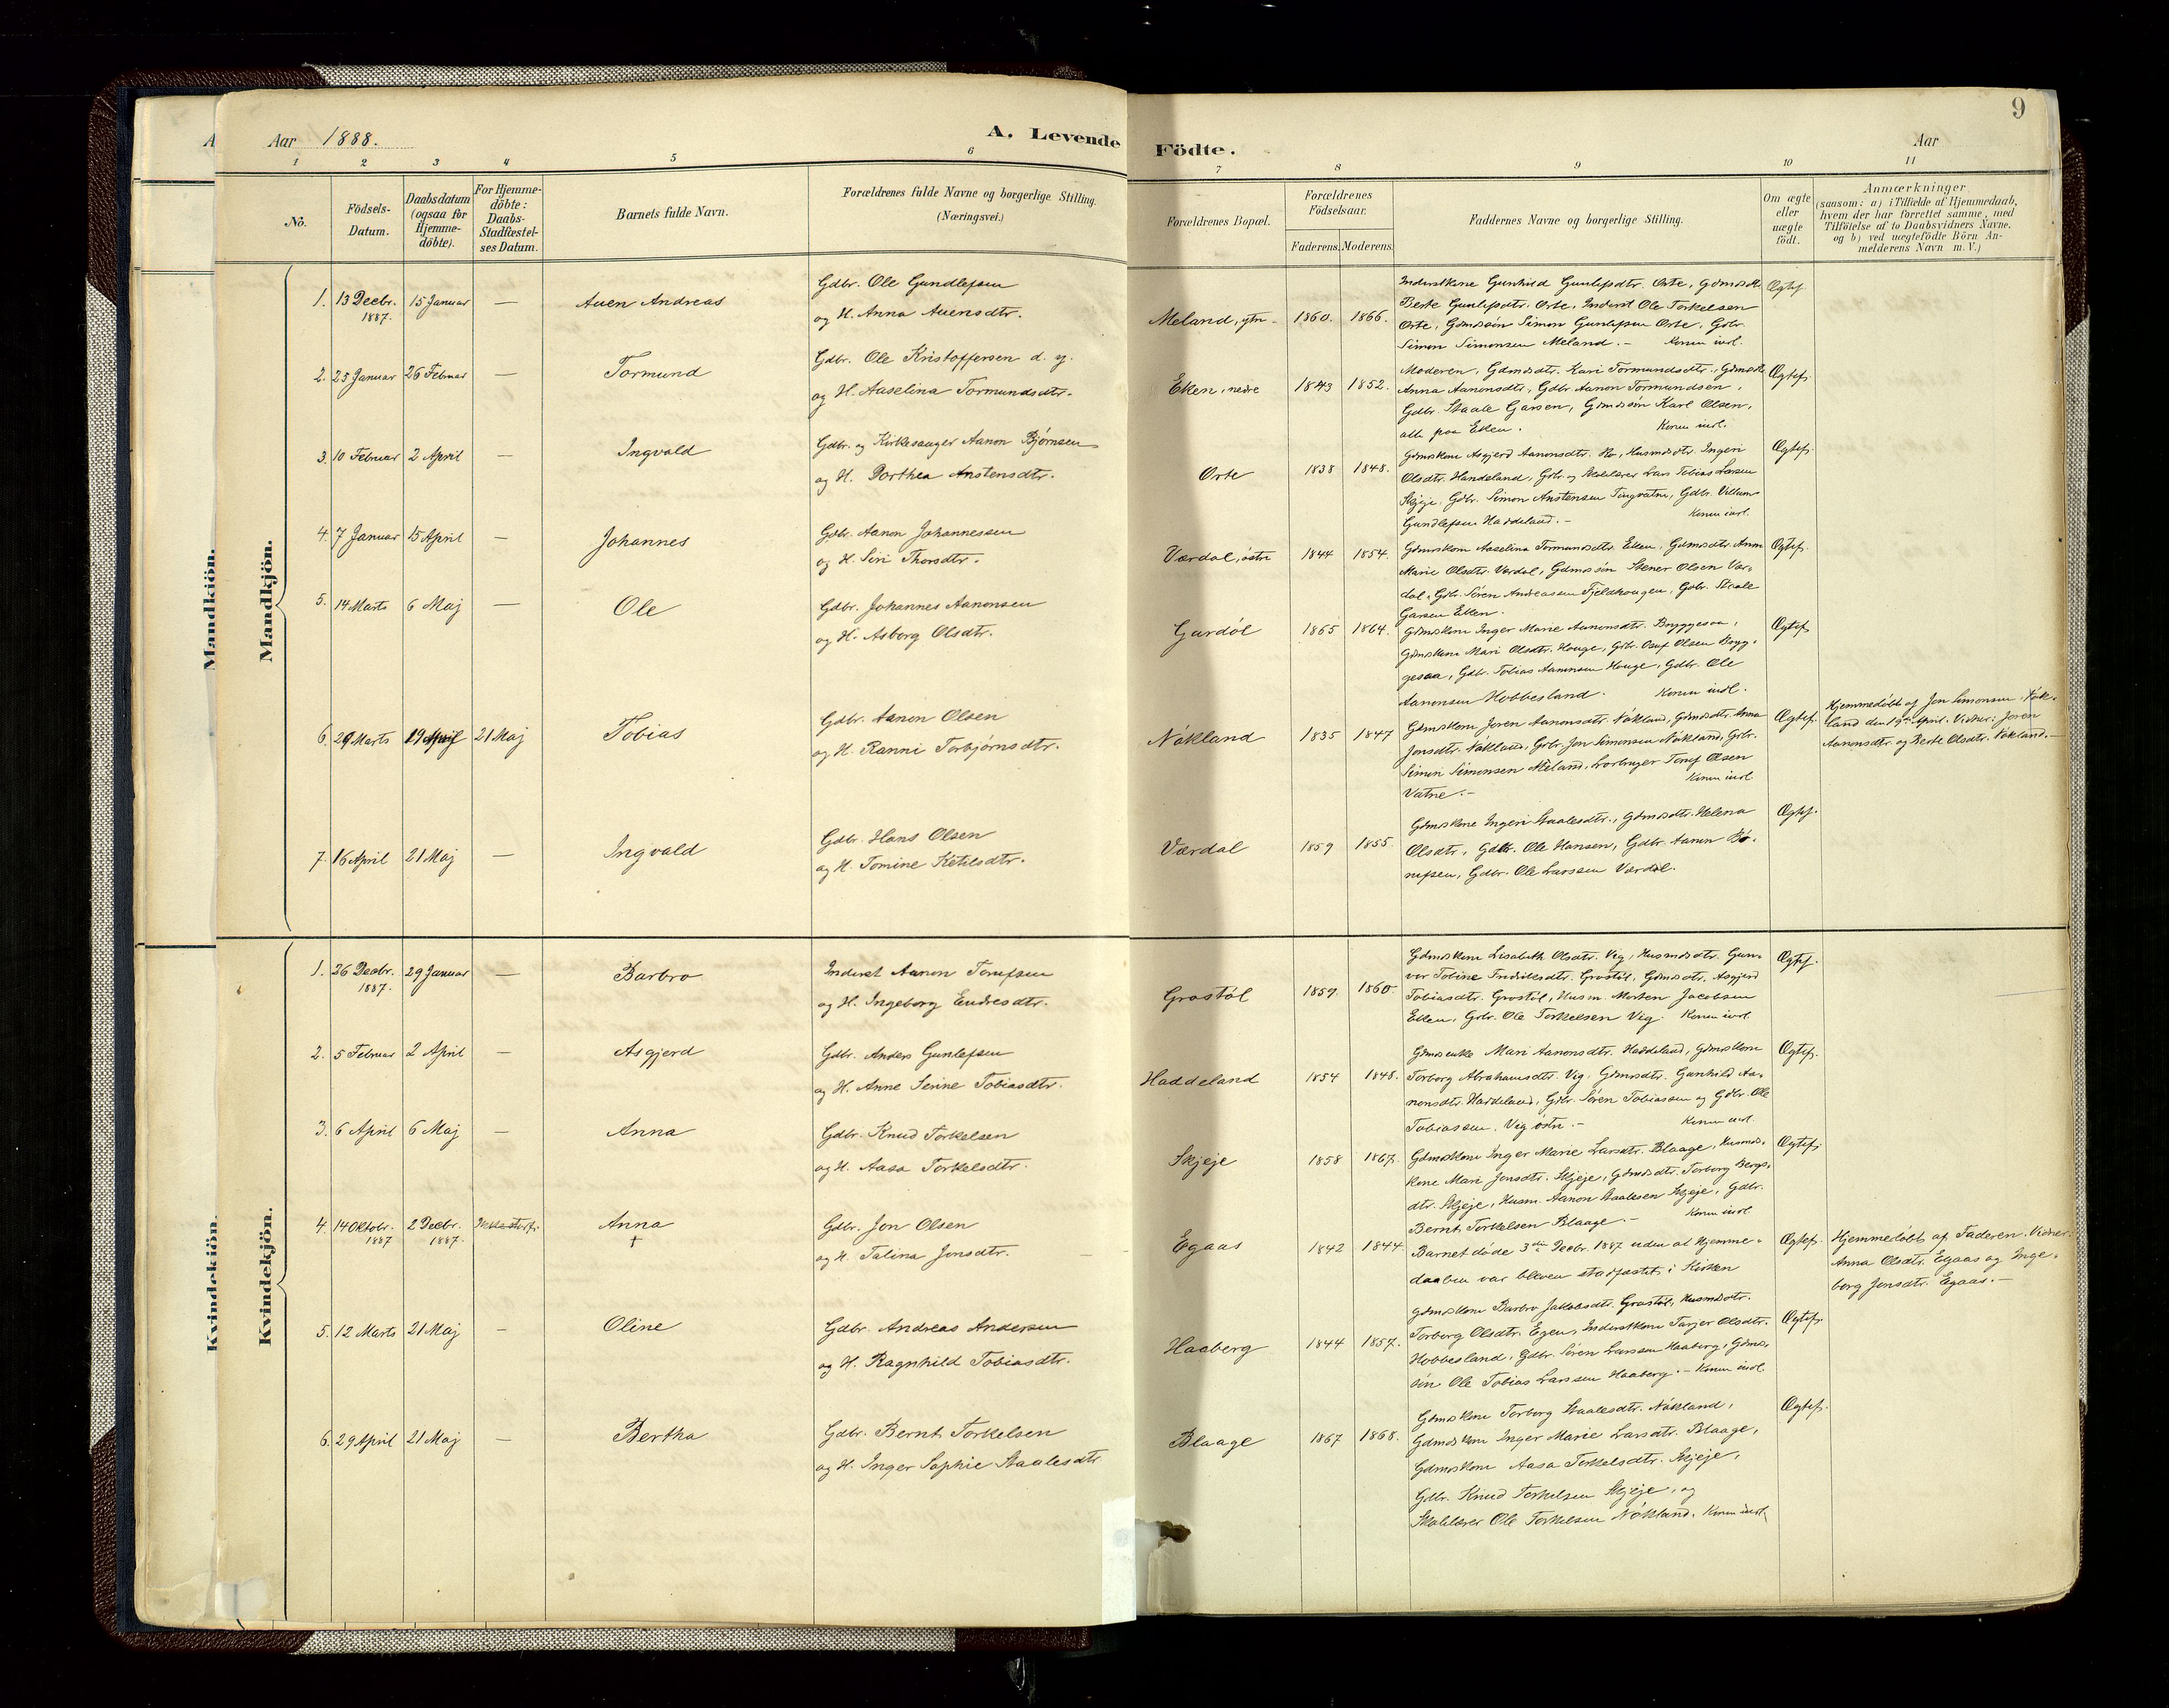 Aar 1888.
A. Levende
Födte.
Aar
9
1 2 3 4 5 6 7 8 9 10 11
No.
Födsels-
Datum.
Daabsdatum
(ogsaa for
Hjemme-
döbte).
For Hjemme-
döbte:
Daabs-
Stadfæstel-
ses Datum.
Barnets fulde Navn.
Forældrenes fulde Navne og borgerlige Stilling.
(Næringsvei.)
Forældrenes Bopæl.
Forældrenes
Födselsaar.
Faderens. Moderens.
Faddernes Navne og borgerlige Stilling.
Om ægte
eller
uægte
födt.
Anmærkninger
(saasom: a) i Tilfælde af Hjemmedaab,
hvem der har forrettet samme, med
Tilföielse af to Daabsvidners Navne.
og b) ved uægtefödte Börn An-
melderens Navn m. V.)
Mandkjön.
Mandkjön.
1. 13 Decbr. 15 Januar — Auen Andreas
1887.
Gdbr. Ole Gundlefsen
og H. Anna Auensdtr.
Meland, ytre 1860. 1866.
Inderstkone Gunhild Gunlefsdtr. Orte, Gdmdsdtr.
Berte Gunlefsdtr. Orte, Inderst Ole Torkelsen
Orte, Gdmdssøn Simon Gunlefsen Orte, Gdbr.
Simon Simonsen Meland. — Konen indl.
Ægtef
2. 25 Januar 26 Februar — Tormund
Gdbr. Ole Kristoffersen d. y.
og H. Aaselina Tormundsdtr.
Eken, nedre 1843 1852.
Moderen, Gdmdsdtr. Kari Tormundsdtr., Gdmdsdtr.
Anna Aanonsdtr., Gdbr. Aanon Tormundsen,
Gdbr. Staale Garsen, Gdmdssøn Karl Olsen,
alle paa Eken. Konen indl.
Ægtef.
3. 10 Februar 2 April — Ingvald
Gdbr. og Kirkesanger Aanon Bjørnsen
og H. Dorthea Anstensdtr.
Orte 1838 1848.
Gdmdskone Asgjerd Aanonsdtr. Ho, Husmdsdtr. Ingeri
Olsdtr. Handeland, Gdbr. og Skolelærer Lars Tobias Larsen
Skjeje, Gdbr. Simon Anstensen Tingvatne, Gdbr. Villum
Gundlefsen Haddeland. — Konen indl.
Ægtef.
4. 7 Januar 15 April — Johannes
Gdbr. Aanon Johannessen
og H. Siri Thorsdtr.
Værdal, østre 1844 1854.
Gdmdskone Aaselina Tormunsdtr. Eken, Gdmdsdtr. Anne
Marie Olsdtr. Værdal, Gdmdssøn Stener Olsen Vær-
dal, Gdbr. Søren Andreassen Fjeldhougen, Gdbr. Staale
Garsen Eken.
Ægtef.
5. 14 Marts 6 Maj — Ole
Gdbr. Johannes Aanonsen
og H. Asborg Olsdtr.
Gardøl 1865 1864.
Gdmdskone Inger Marie Aanonsdtr. Bryggesaa,
Gdmdskone Mari Olsdtr. Houge, Gdbr. Osuf Olsen Bryg-
gesaa, Gdbr. Tobias Aanonsen Houge, Gdbr. Ole
Aanonsen Hobbesland. Konen indl.
Ægtef
6. 29 Marts 19 April 21 Maj Tobias
Gdbr. Aanon Olsen
og H. Ranni Torbjørnsdtr.
Nøkland 1835 1847
Gdmdskone Joren Aanonsdtr. Nøkland, Gdmdsdtr. Anna
Jonsdtr. Nøkland, Gdbr. Jon Simonsen Nøkland, Gdbr.
Simon Simonsen Meland, Lærer Tomef Olsen
Vatne. — Konen indl.
Ægtef.
Hjemmedøbt af Jon Simonsen Nøk-
land den 19de April. Vidner: Joren
Aanonsdtr. og Berte Olsdtr. Nøkland. —
7. 16 April 21 Maj — Ingvald
Gdbr. Hans Olsen
og H. Tomine Ketilsdtr.
Værdal 1859 1855.
Gdmdskone Ingeri Staalesdtr., Gdmdsdtr. Helena
Olsdtr., Gdbr. Ole Hansen, Gdbr. Aanon Bø-
rufsen, Gdbr. Ole Larssen Værdal.
Ægtef.
Kvindekjön.
Kvindekjön.
1. 26 Decbr. 29 Januar — Barbro
1887.
Inderst Aanon Tomefsen
og H. Ingeborg Endresdtr.
Grostøl 1859. 1860.
Gdmdskone Lisabeth Olsdtr. Vig, Husmdsdtr. Gun-
vor Tobine Fredriksdtr. Grostøl, Gdmdsdtr. Asgjerd
Tobiasdtr. Grostøl, Husm. Morten Jacobsen
Eken, Gdbr. Ole Torkelsen Vig. Konen indl
Ægtef.
2. 5 Februar 2 April — Asgjerd
Gdbr. Anders Gunlefsen
og H. Anne Serine Tobiasdtr.
Haddeland 1854 1848.
Gdmdsenke Mari Aanonsdtr. Haddeland, Gdmdskone
Torborg Abrahamsdtr. Vig, Gdmdsdtr. Gunhild Aa-
nonsdtr. Haddeland, Gdbr. Søren Tobiassen og Gdbr. Ole
Tobiassen, Vig østre. — Konen indl.
Ægtef.
3. 6 April 6 Maj — Anna
Gdbr. Knud Torkelsen
og H. Aasa Torkelsdtr.
Skjeje 1858 1867.
Gdmdskone Inger Marie Larsdtr. Blaage, Husmds-
kone Mari Jonsdtr. Skjeje, Gdmdsdtr. Torborg Bergs-
dtr. Skjeje, Husm. Aanon Staalesen Skjeje, Gdbr.
Bernt Torkelsen Blaage. — Konen indl
Ægtef.
4. 14 Oktobr. 2 Decbr. Anna
1887 1887. †
Gdbr. Jon Olsen
og H. Talina Jonsdtr.
Egaas 1842 1844.
Barnet døde 3die Decbr. 1887 uden at Hjemme-
daaben var bleven stadfæstet i Kirken
Ægtef.
Hjemmedøbt af Faderen. Vidner:
Anna Olsdtr. Egaas og Inge-
borg Jonsdtr. Egaas. —
5. 12 Marts 21 Maj — Oline
Gdbr. Andreas Andersen
og H. Ragnhild Tobiasdtr.
Haaberg 1844 1857.
Gdmdskone Barbro Jakobsdtr. Grostøl, Husmdsdtr.
Torborg Olsdtr. Egen, Inderstkone Tarjer Olsdtr.
Hobbesland, Gdbr. Søren Larssen Haaberg, Gdmds-
søn Ole Tobias Larssen Haaberg. — Konen indl.
Ægtef.
6. 29 April 21 Maj — Bertha
Gdbr. Bernt Torkelsen
og H. Inger Sophie Staalesdtr.
Blaage 1867 1868.
Gdmdskone Torborg Staalesdtr. Nøkland,
Gdmdskone Inger Marie Larsdtr. Blaage,
Gdmdskone Aasa Torkelsdtr. Skjeje,
Gdbr. Knud Torkelsen Skjeje, og
Skolelærer Ole Torkelsen Nøkland. Konen indl.
Ægtef.